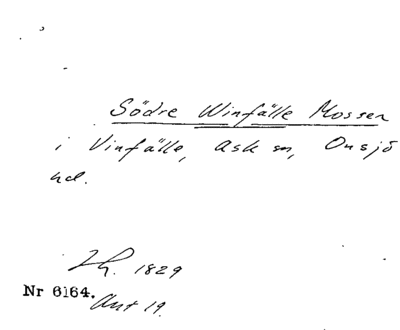 Södre Winfälle Mossen
i Vinfälle, Ask sn, Onsjö
hd.
1829
Nr 6164. Ant 19.